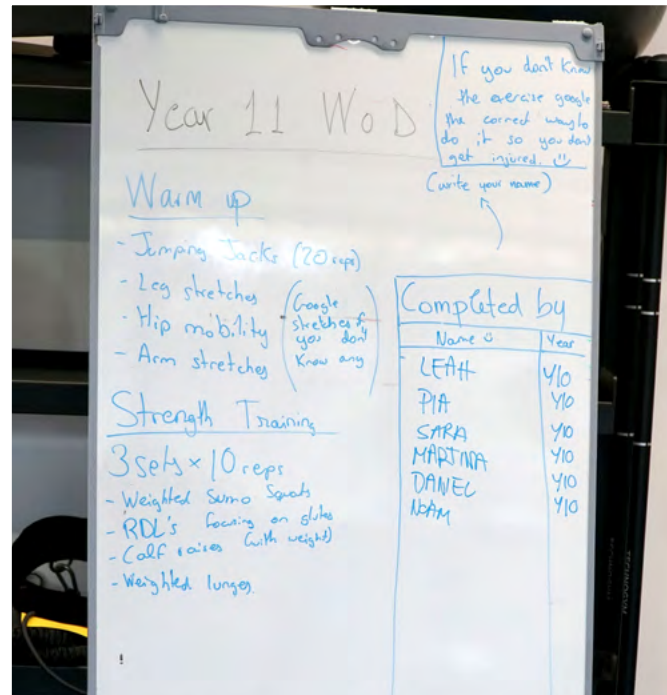 Year 11 WoD
If you don't know
the exercise google
the correct way to
do it so you don't
get injured.
(write your name)
Warm up
- Jumping Jacks (20 reps)
- Leg stretches
- Hip mobility
- Arm stretches
(Google
stretches if
you don't
know any)
Strength Training
3 sets × 10 reps
- Weighted Sumo Squats
- RDL's focusing on glutes
- Calf raises (with weight)
- Weighted lunges
Completed by
Name Year
LEAH Y10
PIA Y10
SARA Y10
MARTINA Y10
DANIEL Y10
NOAM Y10
TECHNOGYM